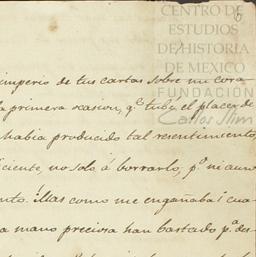 CENTRO DE
ESTUDIOS
DE HISTORIA
DE MEXICO
FUNDACIÓN
Carlos Slim
5
imperio de tus cartas sobre mi cora-
la primera ocasion, qe tube el placer de
habia producido tal resentimiento,
iciente, no solo á borrarlo, pr ni aun
nto. Mas como me engañaba! cua
a mano preciosa han bastado pa des-